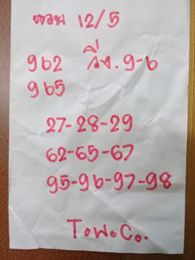 หวย 12/5
962 วิ่ง.9-6
965
27-28-29
62-65-67
95-96-97-98
TowoCo.